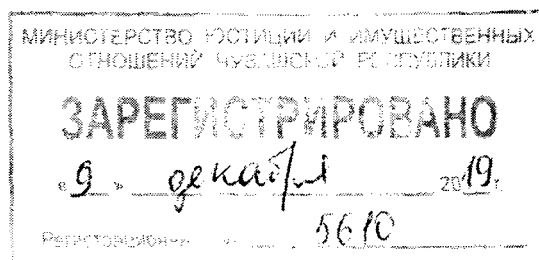 МИНИСТЕРСТВО ЮСТИЦИИ И ИМУЩЕСТВЕННЫХ
ОТНОШЕНИЙ ЧУВАШСКОЙ РЕСПУБЛИКИ
ЗАРЕГИСТРИРОВАНО
«9» декабря 2019 г.
5610